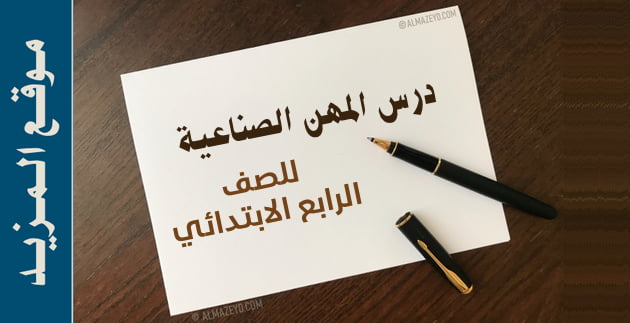 © ALMAZEYD.COM
درس المهن الصناعية
للصف
الرابع الابتدائي
© ALMAZEYD.COM
موقع المزيد